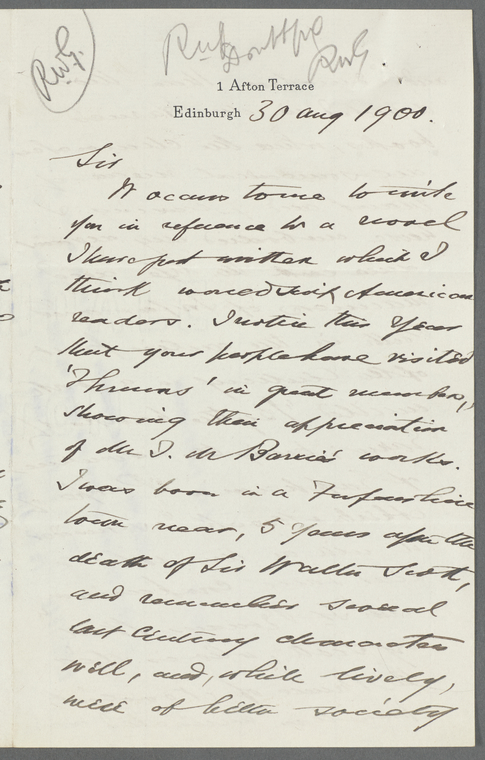 RWG.
RWG
1 Afton Terrace
Edinburgh 30 Aug 1900.
Sir
It occurs to me to write
you in reference to a novel
I have just written which I
think would suit American
readers. I notice this year
that your people have visited
'Thrums' in great number,
showing their appreciation
of Mr J. M Barrie's works.
I was born in a Forfarshire
town near, 5 years after the
death of Sir Walter Scott,
and remember several
last Century characters
well, and, while lively,
were of better society